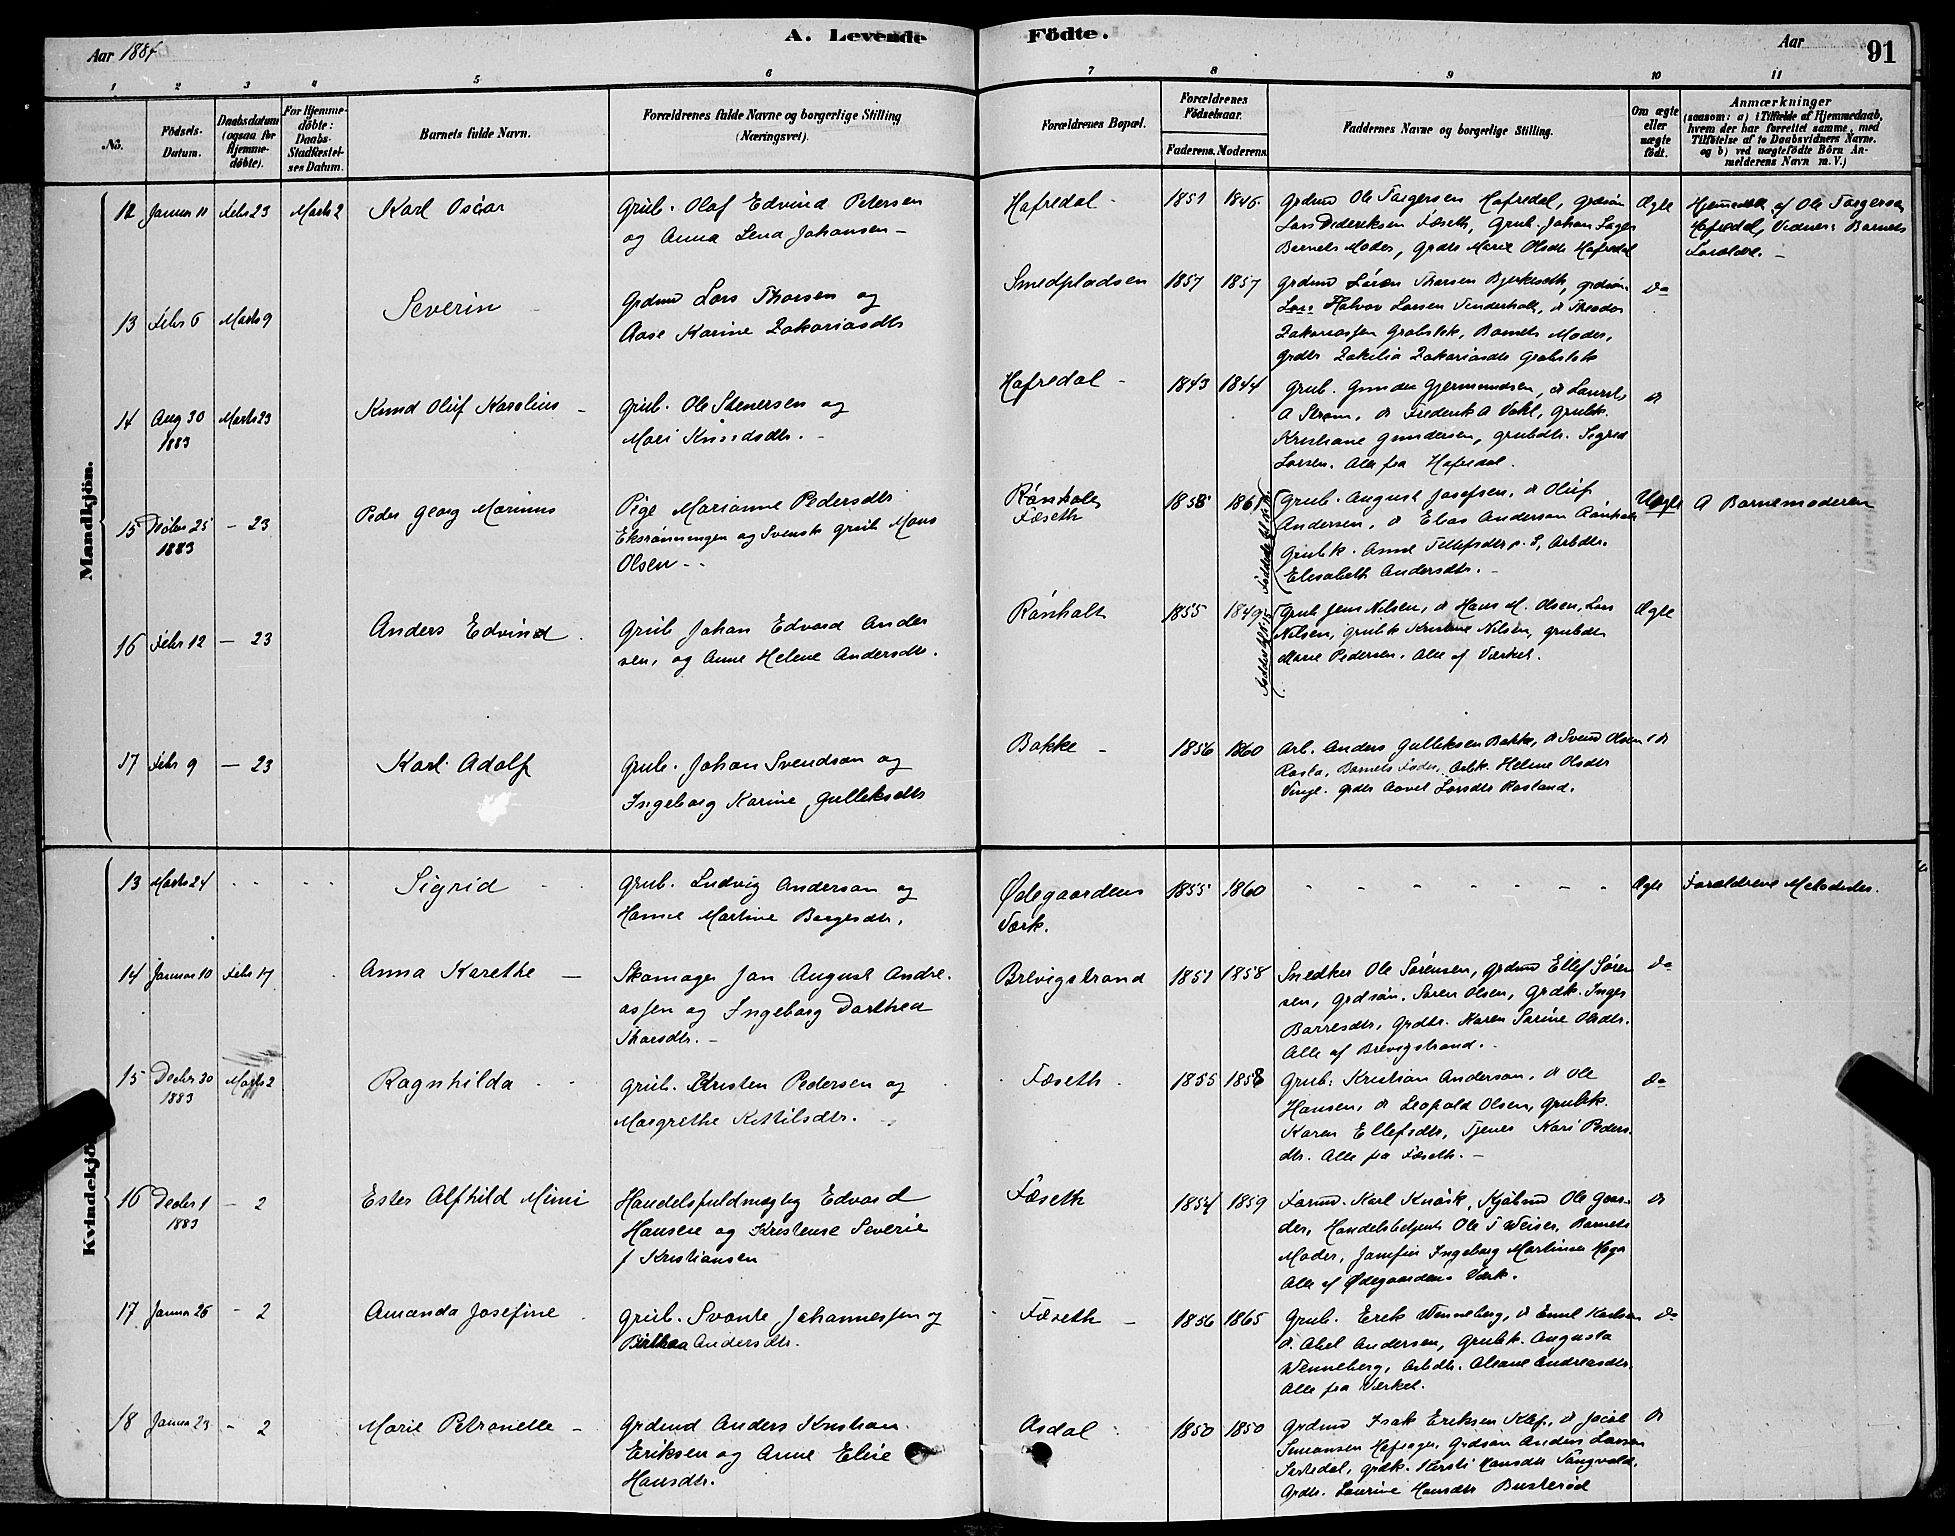 Aar 1884
A. Levende Födte.
Aar
91
1 2 3 4 5 6 7 8 9 10 11
No.
Födsels-Datum.
Daabsdatum (ogsaa for Hjemme-döbte).
For Hjemme-döbte: Daabs-Stadfæstel-ses Datum.
Barnets fulde Navn.
Forældrenes fulde Navne og borgerlige Stilling (Næringsvei).
Forældrenes Bopæl.
Forældrenes Födselsaar.
Faderens. Moderens.
Faddernes Navne og borgerlige Stilling.
Om ægte eller uægte födt.
Anmærkninger
(saasom: a) i Tilfælde af Hjemmedaab, hvem der har forrettet samme, med Tilföielse af to Daabsvidners Navne. og b) ved uægtefödte Börn An-melderens Navn m. V.)
Mandkjön.
12 Januar 11 Febr 23 Marts 2 Karl Oscar
Grub. Olaf Edvind Petersen
og Anna Lena Johansen -
Hafredal - 1851 1846
Grdmd Ole Torgersen Hafredal, grdsøn
Lars Dideriksen Fæseth, Grub. Johan
Barnets Moder, Grdtr Marie Olsdtr Hafredal
Ægte
Hjemmedbt. af Ole Torgersen
Hafredal, Vidner: Barnets
Forældre. -
13 Febr 6 Marts 9 Severin
Grdmd Lars Thorsen og
Aase Karine Zakariasdtr
Smedpladsen 1857 1857
Grdmd Søren Thorsen Bjerkeseth, grdsøn
Halvor Larsen Vinderholt, do Theodor
Zakariassen Grobstok, Barnets Moder,
Grdtr Zakilia Zakariasdtr Grobstok
do
14 Aug 30 1883 Marts 23 Knud Oluf Karolius -
Grub. Ole Stenersen og
Mari Knudsdtr. -
Hafredal - 1843 1844
Grub. Gunder Gjermundsen, do Laurits
A Strøm, do Frederik A Vahl, Grubk.
Kristiane Gundersen, grubdtr. Sigrid
Larsen. Alle fra Hafredal.
do
15 Dcbr 25 1883 - 23 Peder Georg Marinus
Pige Marianne Pedersdtr
Eksrønningen og Svensk grub Mons
Olsen - -
Rønholt
Fæseth 1858 1861
Grub. August Josefsen, do Oluf
Andersen, do Elias Anderson Rønholt
Grubk. Anne Tellefsdtr p. S, Arbdtr.
Elisabeth Andersdtr. -
Uægte
A Barnemoderen
16 Febr 12 - 23 Anders Edvind
Grub Johan Edvard Ander
sen, og Anne Helene Andersdtr.
Rønholt 1855 1849
Grub Jens Nilsen, do Hans M. Olsen, Lars
Nilsen, grubk Kristine Nilsen, grubdtr
Marie Pedersen. Alle af Værket.
Ægte
17 Febr 9 - 23 Karl Adolf
Grub. Johan Svendsen og
Ingeborg Karine Gulleksdtr
Bakke - 1856 1860
Arb. Anders Gulleksen Bakke, do Svend Olsen
Rasta, Barnets Fader, Arbk. Helene Olsdtr
Vinje. grdtr Aavel Larsdtr Rosland.
do
Kvindekjö
13 Marts 24 Sigrid
Grub. Ludvig Anderson og
Hanne Martine Borgersdtr,
Ødegaardens
Værk. 1855 1860
Ægte
Forældrene Metodister.
14 Januar 10 Febr 17 Anna Karethe -
Skomager Jan August Andre
assen og Ingeborg Dorthea
Thorsdtr. -
Brevigstrand 1851 1858
Snedker Ole Sørensen, Grdmd Ellef Søren
sen, Grdsøn. Søren Olsen, Grdk. Inger
Børresdtr, Grdtr. Karen Sørine Olsdtr.
Alle af Brevigstrand. -
do
15 Decbr 30 1883 Marts 2 Ragnhilda
Grub. Kristen Pedersen og
Margrethe Kittilsdtr.
Fæseth 1855 1858
Grub. Kristian Anderson, do Ole
Hansen, do Leopold Olsen, Grubk.
Karen Ellefsdtr, Tjener Kari Peders
dtr. Alle fra Fæseth. -
do
16 Decbr 1 1883 - 2 Ester Alfhild Mimi
Handelsfuldmægtig Edvard
Hansen og Kristense Severie
f Kristiansen
Fæseth 1854 1859
Karl Knark, Kjøbmd Ole Gaar-
der, Handelsbetjent Ole T Weiser, Barnets
Moder, Jomfru Ingeborg Martinsen
Alle af Ødegaardens Værk.
do
17 Januar 26 - 2 Amanda Josefine
Grub. Svante Johannessen og
Andersdtr.
Fæseth - 1856 1865
Grub. Erik Wenneberg, do Emil Karlson
do. Abel Andersen, Grubk. Augusta
Wenneberg, Arbdtr. Alsane Andreasdtr.
Alle fra Værket.
do
18 Januar 23 - 2 Marie Petronelle -
Grdmd Anders Kristian
Eriksen og Anne Elise
Hansdtr.
Asdal 1850 1850
Grdmd Isak Eriksen Klep, do Jacob
Simonsen Hafsager, Grdsøn Anders Larsen
grdk. Kirsti Hansdtr Tangvald,
Grdtr. Laurine Hansdtr Busterød
do